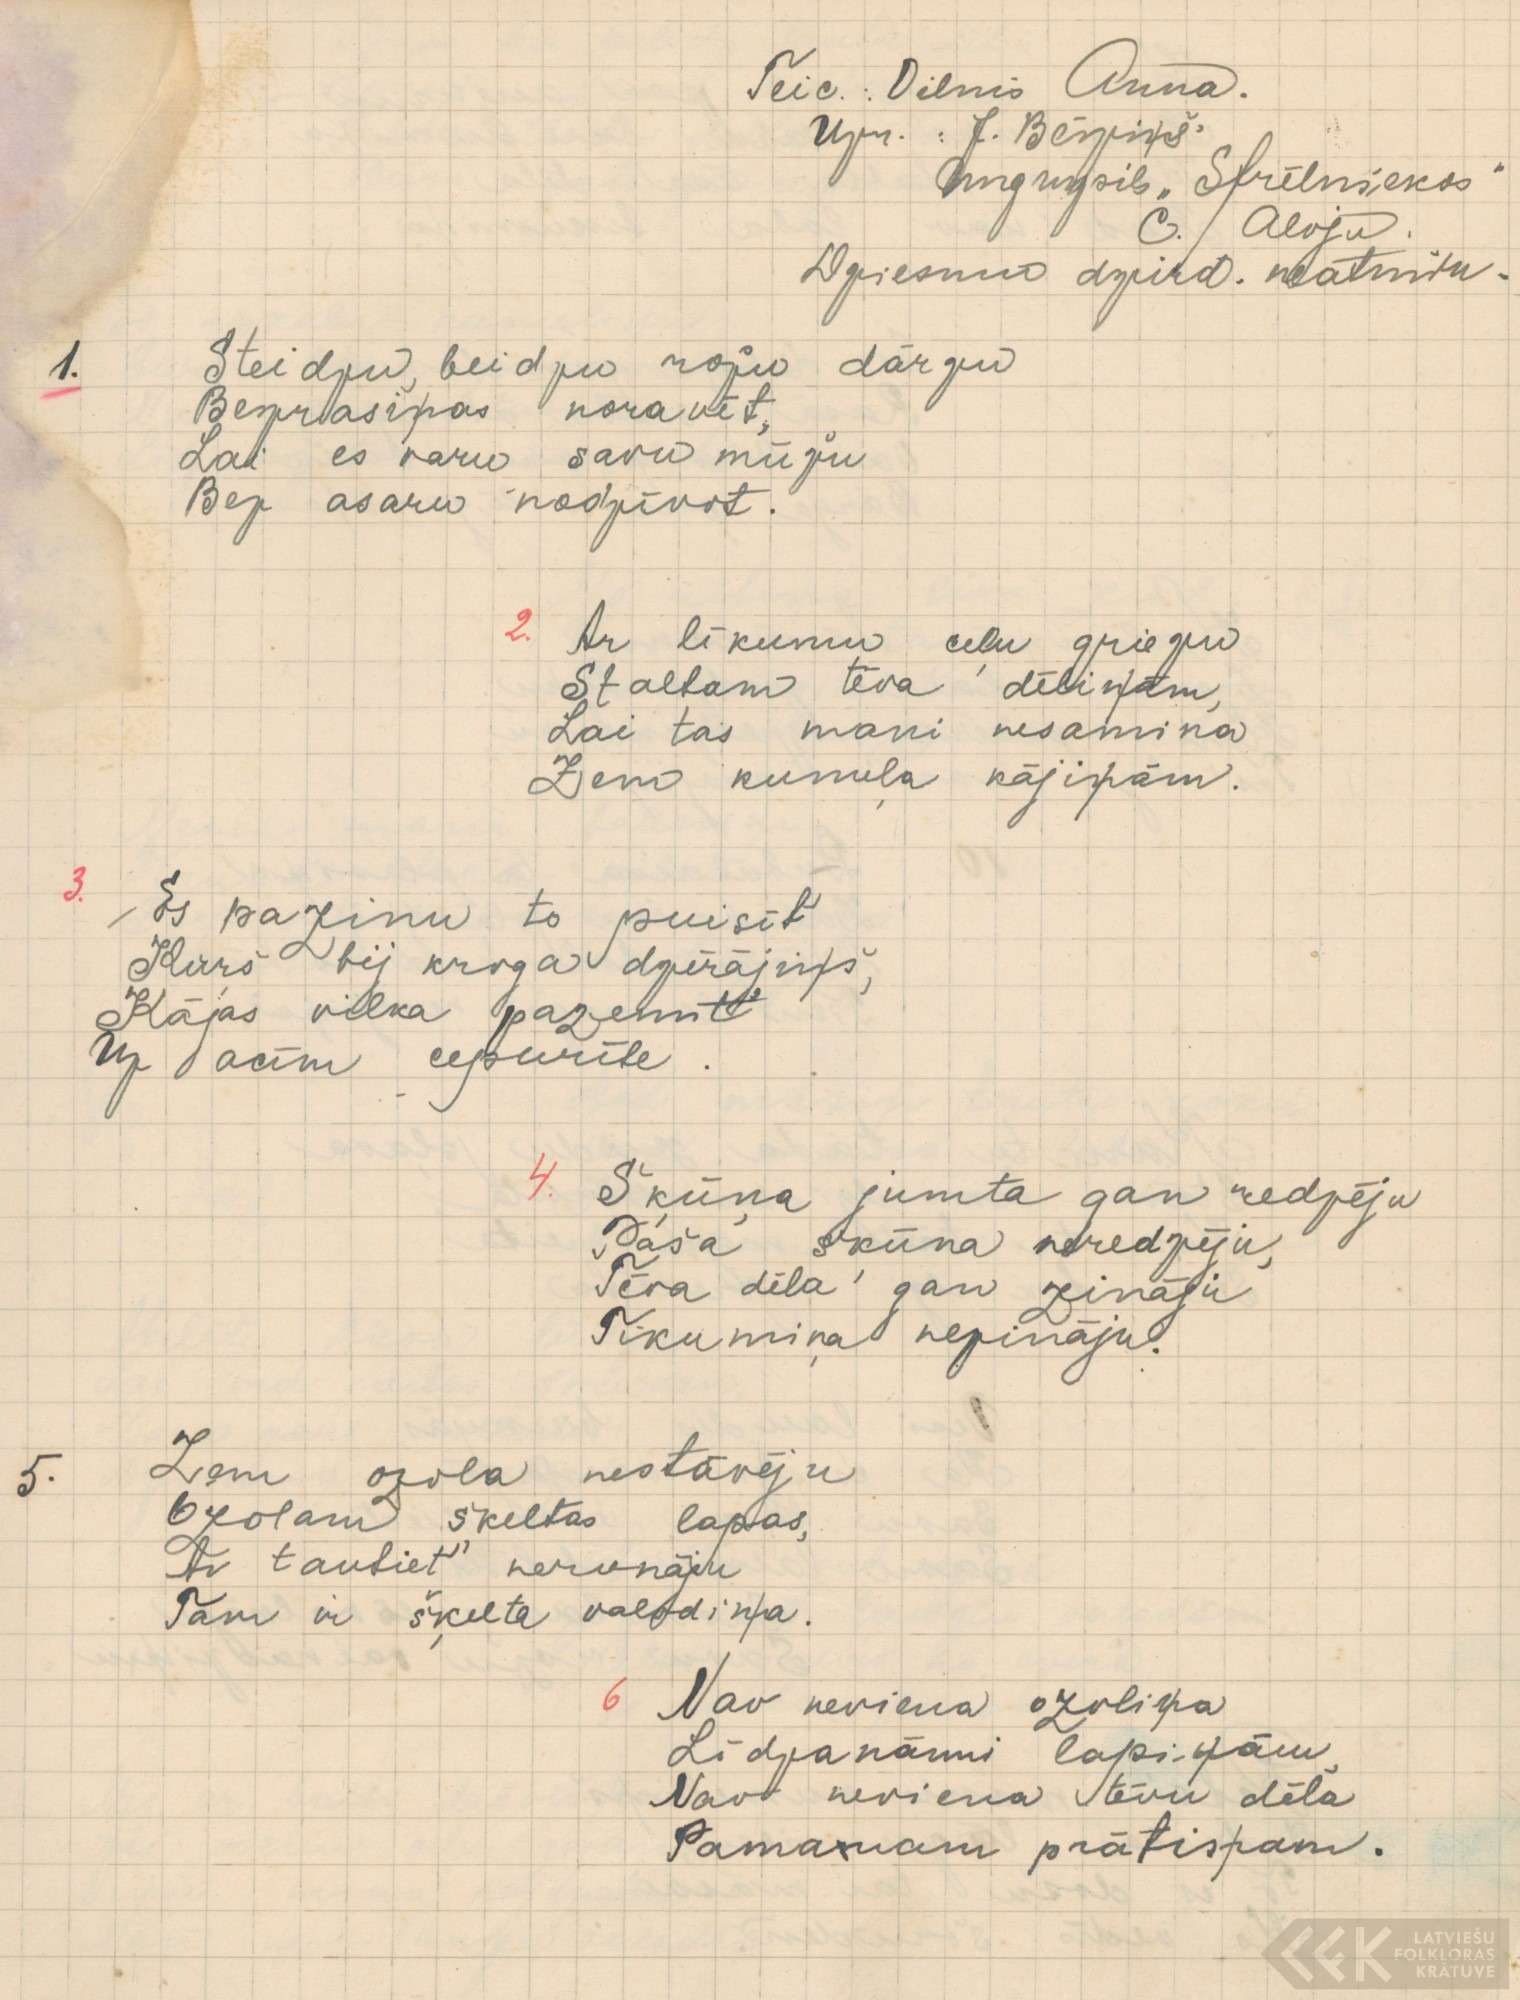 Teic.: Vilnis Anna.
Uzr.: J. Bērziņš.
Ungurpils „Strēlniekos"
C. Aloju.
Dziesmu dzird. neatmiņu.
1. Steidzu, beidzu rožu dārzu
Bezrašiņas noravēt,
Lai es varu savu mūžu
Bez asaru nodzīvot.
2. Ar līkumu ceļu griezu
Staltam tēva dēliņam,
Lai tas mani nesamina
Zem kumeļa kājiņām.
3. Es pazinu to puisīt'
Kuŗš bij kroga dzērājiņš,
Kājas vilka pazemīt'
Uz acīm cepurīte.
4. Šķūņa jumta gan redzēju
Paša šķūņa neredzēju,
Tēva dēla gan zināju
Tikumiņa nezināju.
5. Zem ozola nestāvēju
Ozolam šķeltas lapas,
Ar tautiet' nerunāju
Tam ir šķelta valodiņa.
6 Nav neviena ozoliņa
Līdzanāmi lapiņām,
Nav neviena tēvu dēla
Pamanam prātiņam.
LATVIEŠU
FOLKLORAS
KRĀTUVE